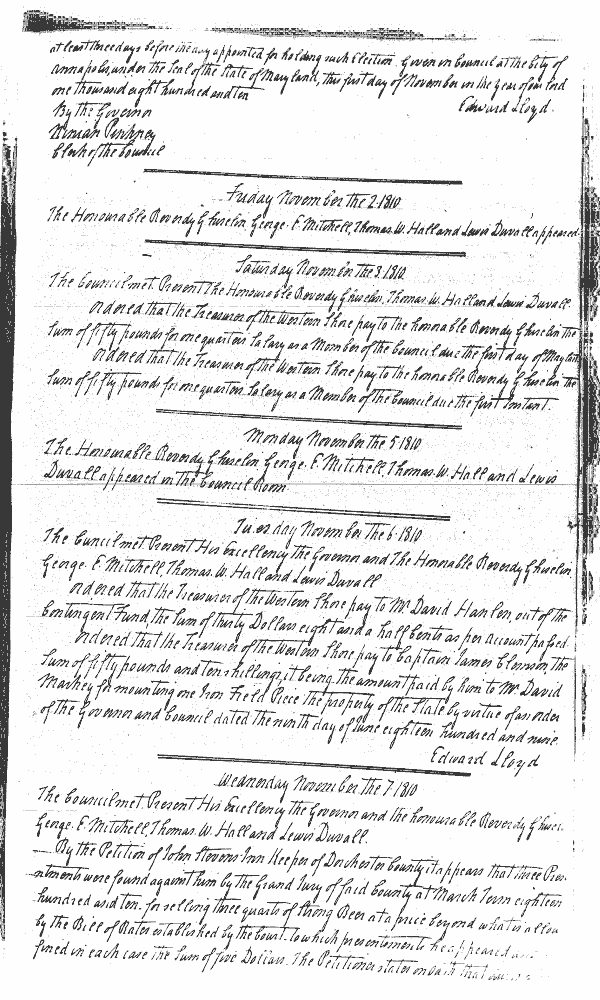 at least three days before the day appointed for holding such Election. Given in Council at the City of
Annapolis, under the Seal of the State of Maryland, this first day of November in the year of our Lord
one thousand eight hundred and ten
Edward Lloyd.
By the Governor
Ninian Pinkney
Clerk of the Council
Friday November the 2. 1810.
The Honourable Reverdy Ghiselin, George. E. Mitchell, Thomas. W. Hall and Lewis Duvall appeared
Saturday November the 3. 1810.
The Council met. Present The Honourable Reverdy Ghiselin, Thomas. W. Hall and Lewis Duvall.
Ordered that the Treasurer of the Western Shore pay to the honorable Reverdy Ghiselin the
Sum of fifty pounds for one quarters Salary as a Member of the Council due the first day of May last
Ordered that the Treasurer of the Western Shore pay to the honorable Reverdy Ghiselin the
Sum of fifty pounds for one quarters Salary as a Member of the Council due the first Instant.
Monday November the 5. 1810
The Honourable Reverdy Ghiselin, George. E. Mitchell, Thomas. W. Hall and Lewis
Duvall appeared in the Council Room.
Tuesday November the 6. 1810
The Council met Present His Excellency the Governor and The Honorable Reverdy Ghiselin,
George. E. Mitchell, Thomas. W. Hall and Lewis Duvall
Ordered that the Treasurer of the Western Shore pay to Mr. David Hanlen, out of the
Contingent Fund, the Sum of thirty Dollars eight and a half Cents as per account passed.
Ordered that the Treasurer of the Western Shore pay to Captain James the
Sum of fifty pounds and ten shillings, it being the amount paid by him to Mr. David
Markey for mounting one Iron Field Piece the property of the State by virtue of an order
of the Governor and Council dated the ninth day of June eighteen hundred and nine.
Edward Lloyd
Wednesday November the 7. 1810
The Council met. Present His Excellency the Governor and the honourable Reverdy Ghise
George. E. Mitchell, Thomas. W. Hall and Lewis Duvall.
By the Petition of John Stevens Inn Keeper of Dorchester County it appears that three Pres-
entments were found against him by the Grand Jury of said County at March Term eighteen
hundred and ten, for selling three quarts of Strong Beer at a price beyond what is allow
by the Bill of Rates established by the Court, to which presentments he appeared and
fined in each case the Sum of five Dollars. The Petitioner states on oath that